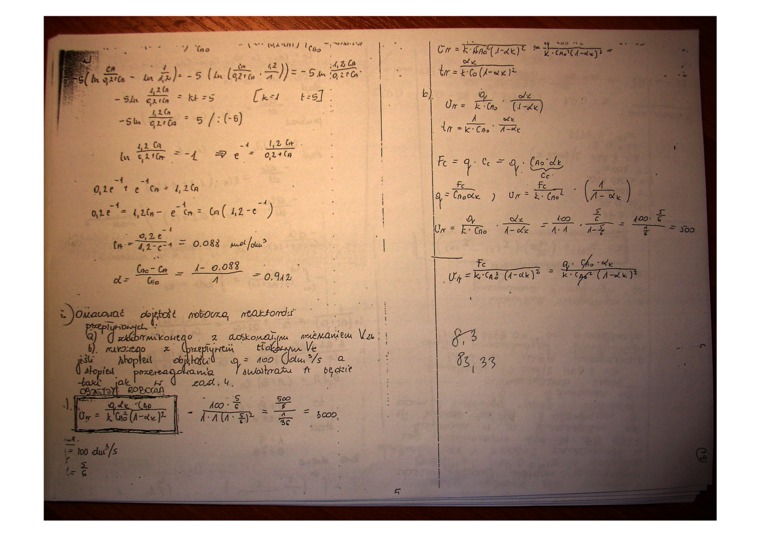 -5(ln CA/(0,2+CA) - ln 1/1,2) = -5 (ln (CA/(0,2+CA) · 1,2/1)) = -5 ln 1,2 CA/(0,2+CA)
-5 ln 1,2 CA/(0,2+CA) = kt = 5 [k=1 t=5]
-5 ln 1,2 CA/(0,2+CA) = 5 /:(-5)
ln 1,2 CA/(0,2+CA) = -1 ⇒ e^-1 = 1,2 CA/(0,2+CA)
0,2 e^-1 + e^-1 CA = 1,2 CA
0,2 e^-1 = 1,2 CA - e^-1 CA = CA (1,2 - e^-1)
CA = 0,2 e^-1/(1,2 - e^-1) = 0.088 mol/dm³
α = (CA0 - CA)/CA0 = (1 - 0.088)/1 = 0.912
Oszacować objętość roboczą reaktorów
przepływowych:
a) zbiornikowego z doskonałym mieszaniem
b) z przepływem tłokowym
jeśli objętości q = 100 dm³/s a
stopień przereagowania A będzie
taki jak w zad. 4.
OBJĘTOŚĆ ROBOCZA
Ur = q αk CA0/(k CA0² (1-αk)²) = 100 · 5/6/(1·1 (1 - 5/6)²) = (500/6)/(1/36) = 3000
= 100 dm³/s
= 5/6
tr = αk/(k · C0 (1-αk)²)
b)
Ur = q/(k · CA0) · αk/(1-αk)
tr = 1/(k · CA0) · αk/(1-αk)
Fc = q · Cc = q · CA0 · αk
Cc
q = Fc/(CA0 αk) , Ur = Fc/(k · CA0²) · (1/(1-αk))
Ur = q/(k · CA0) · αk/(1-αk) = 100/(1·1) · (5/6)/(1-5/6) = (100 · 5/6)/(1/6) = 500
Ur = Fc/(k · CA0² (1-αk)²) = q · CA0 · αk/(k · CA0² (1-αk)²)
8,3
83,33
5